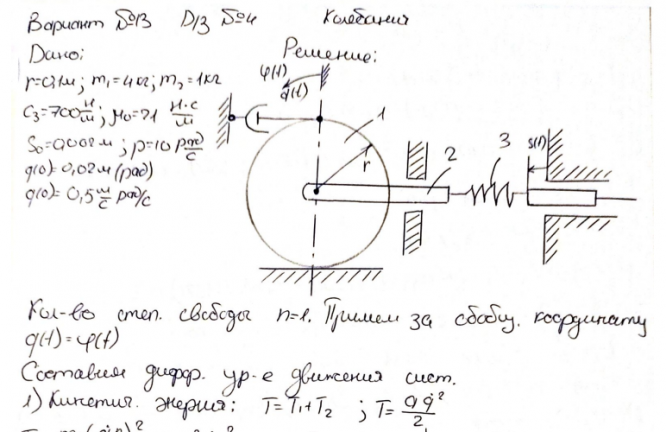 Вариант №13 Д/З №4 Колебания
Дано:
Решение:
r=0,1м; m₁=4кг; m₂=1кг
C₃=700 Н/м; μ₀=21 Н·с/м
S₀=0,002м; p=10 рад/с
q(0)=0,02м (рад)
q̇(0)=0,5 м/с рад/с
φ(t)
q(t)
1
r
2
3
S(t)
Кол-во степ. свободы n=1. Примем за обобщ. координату
q(t)=φ(t)
Составим дифф. ур-е движения сист.
1) Кинетич. энергия: T=T₁+T₂ ; T=aq̇²/2